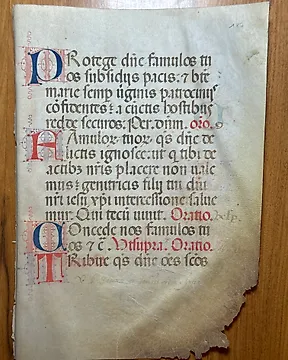 PRotege dñe famulos tu
os subsidijs pacis: ⁊ bte
marie semp uirginis patrocinijs
cõfidentes: a cũctis hostibus
redde securos. Per. dñm. oro.
FAmulor tuor. qs dñe de
lictis ignosce: ut q tibi de
actibꝫ nr̃is placere non uale
mus: genitricis filij tui dñi
nr̃i iesu xp̃i intercessione salue
mur. Qui tecũ uiuit. Oratio.
COncede nos famulos tu
os ⁊ c̃. Vt supra. Oratio.
TRibue qs dñe oẽs scõs